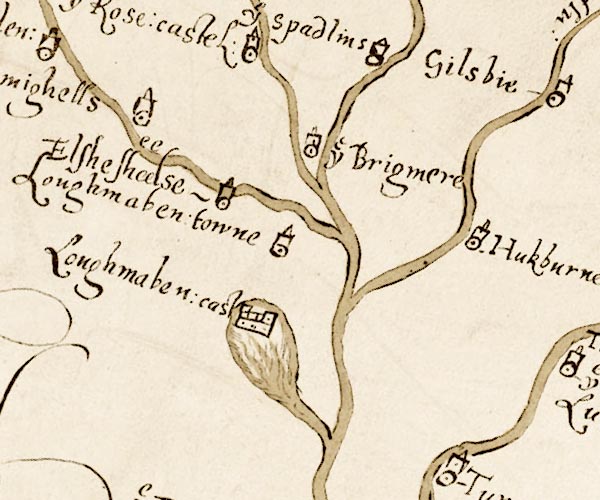 len:
yͤ Rose:castel:
spadlins
Gilsbie
mighells
yͤ Brigmere
Elsheshedse
Loughmaben:towne
Hukburne
Loughmaben:cast
Lu
Tun